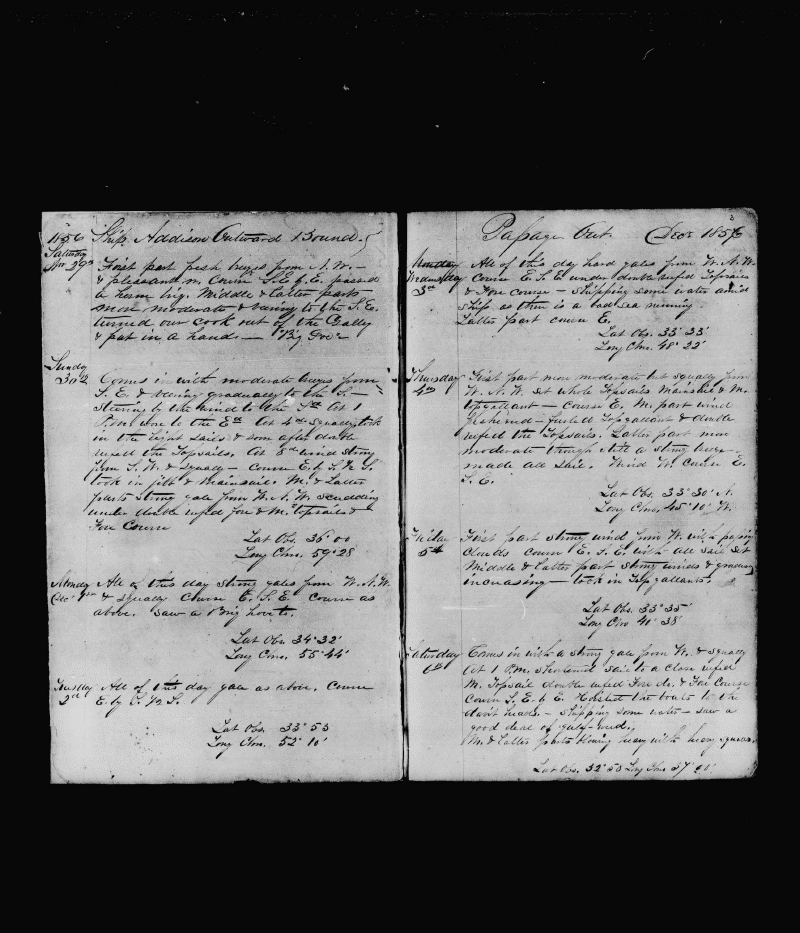 1856 Ship Addison Outward Bound.
Saturday
Nov 29th First part fresh breezes from N.W.—
& pleasant m. Course S.E. by E. passed
a brig. Middle & Latter parts
more moderate & to the S.E.
turned our cook out of the Galley
& put in a hand —
Sunday
30th Comes in with moderate breezes from
S.E. & gradually to the S.—
steering by the wind to the At 1
P.M. to the E At 4 squally took
in the light sails & soon after double
reefed the Topsails. At 8 wind strong
from S.W. & squally — course E. by S. ½ S.
took in jibb & Mainsail. M. & Latter
parts strong gale from W.N.W. scudding
under double reefed fore & M. topsails &
Fore Course
Lat Obs. 36° 00
Long Chro. 59° 28
Monday
Dec 1st All of this day strong gales from W.N.W.
& squally Course E.S.E. Course as
above. Saw a Brig hove to.
Lat Obs 34° 32'
Long Chro. 55° 44'
Tuesday
2d All of this day gale as above. Course
E. by S. ½ S.
Lat Obs. 33° 53
Long Chro. 52° 10'
3
Passage Out Dec 1856
Wednesday
3rd All of this day hard gales from W.N.W.
Course E.S.E. under double reefed Topsails
& Fore course — shipping some water
ship as there is a bad sea running.
Latter part course E.
Lat Obs. 33° 33'
Long Chro. 48° 22'
Thursday
4th First part more moderate but squally from
W.N.W. set whole Topsails Mainsail & M.
topgallant — Course E. M. part wind
freshened — furled Topgallant & double
reefed the Topsails. Latter part more
moderate though still a strong breeze —
made all sail. Wind W. Course E.
S.E.
Lat Obs. 33° 30' N.
Long Chro. 45° 10' W.
Friday
5th First part strong wind from W. with passing
clouds course E.S.E. with all sail set
Middle & latter part strong winds &
increasing — took in Topgallants.
Lat Obs. 33° 35'
Long Chro 41° 38'
Saturday
6th Comes in with a strong gale from W. & squally
At 1 P.M. shortened sail to a close reefed
M. Topsail double reefed Fore do. & Fore Course
Course S.E. by E. Hoisted the boats to the
davit heads. — shipping some water — saw a
good deal of gulf-weed.
M. & Latter parts blowing heavy with heavy squalls.
Lat Obs. 32° 53 Long Chro 37°